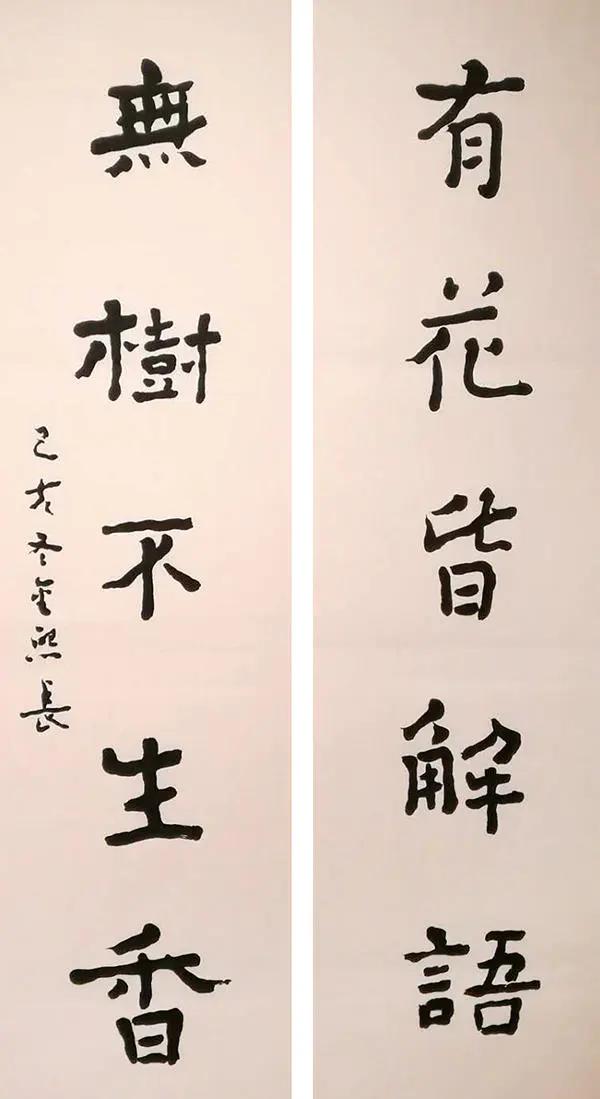 有花皆解語
無樹不生香
己亥冬金熙長